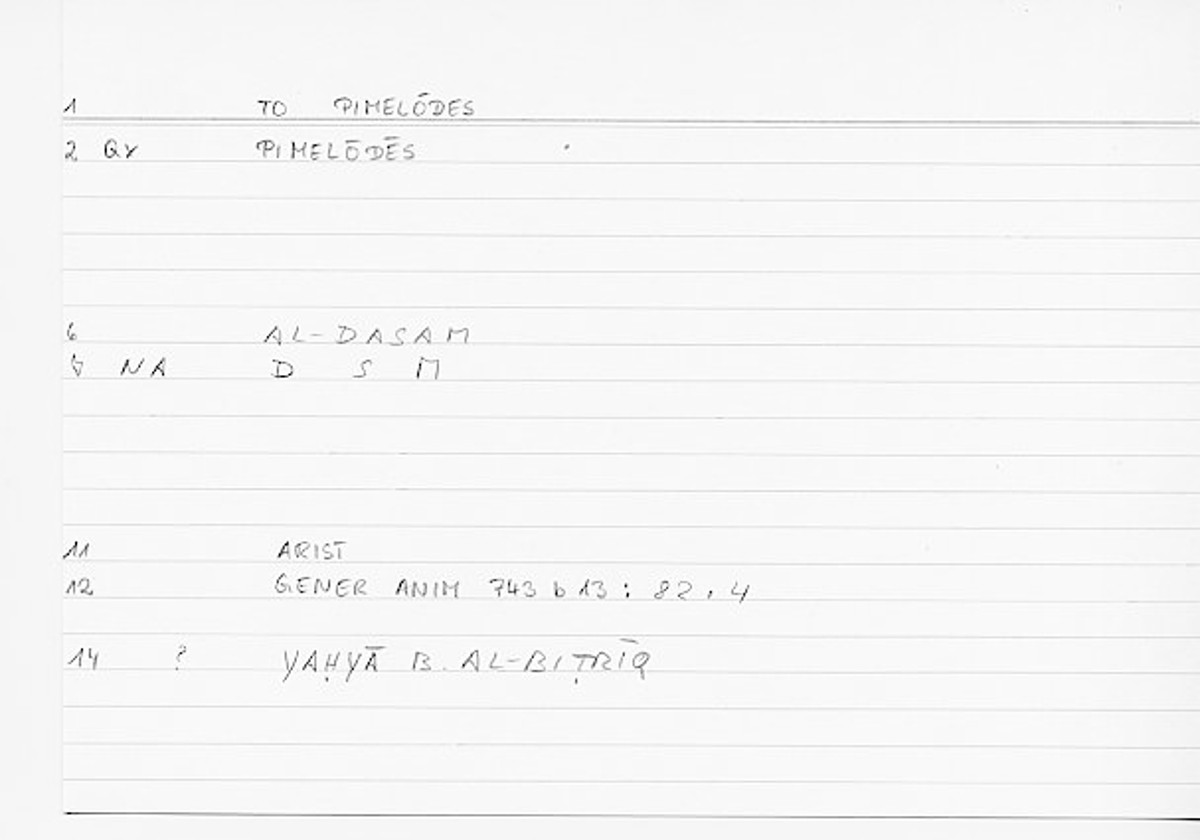 1 TO PIMELŌDES
2 Qy PIMELŌDĒS
6 AL-DASAM
7 NA D S M
11 ARIST
12 GENER ANIM 743 b 13 : 82 , 4
14 ? YAḤYĀ B. AL-BIṬRĪQ